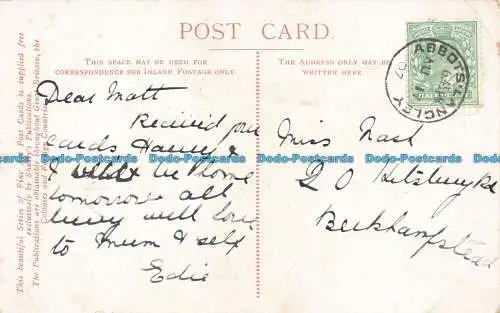 POST CARD.
THIS SPACE MAY BE USED FOR
CORRESPONDENCE FOR INLAND POSTAGE ONLY.
THE ADDRESS ONLY MAY BE
WRITTEN HERE.
This beautiful Series of Fine Art Post Cards is supplied free
exclusively by Shurey's Publications.
The Publications are obtainable throughout Great Britain, the
Colonies and Foreign Countries.
ABBOTS LANGLEY
07
Dear Matt
Received your
cards
& will be home
tomorrow all
well love
to mum & self
Edie
Miss Nash
20
Berkhampstead
Dodo-Postcards Dodo-Postcards Dodo-Postcards Dodo-Postcards